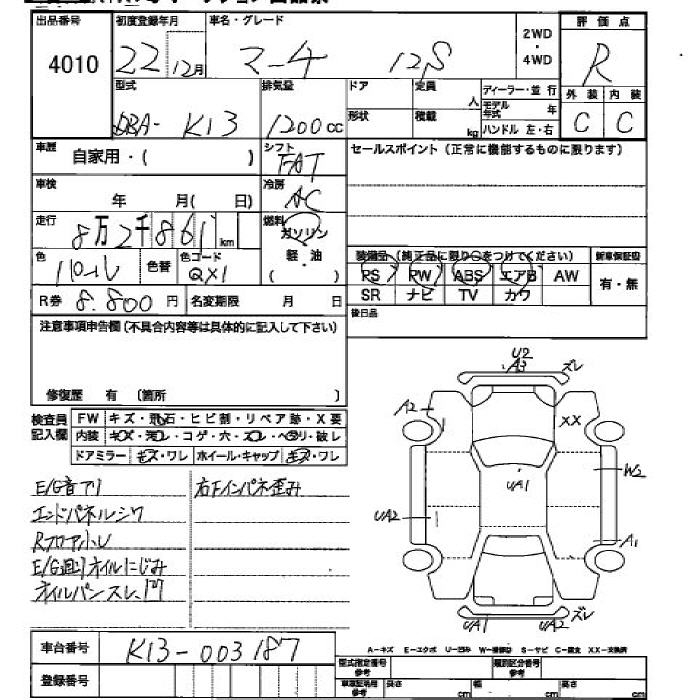 出品番号
4010
初度登録年月
22 12月
車名・グレード
マーチ 12S
2WD
・
4WD
評価点
R
型式
DBA- K13
排気量
1200cc
ドア
形状
定員
人
積載
kg
ディーラー・並行
モデル年式 年
ハンドル 左・右
外装 内装
C C
車歴
自家用・( )
シフト
FAT
セールスポイント(正常に機能するものに限ります)
車検
年 月( 日)
冷房
AC
走行
8万2千861km
燃料
ガソリン
軽・油
( )
色
パール
色替
色コード
QX1
装備品(純正品に限り○をつけてください)
新車保証書
PS PW ABS エアB AW
有・無
SR ナビ TV カワ
R券 8.800円
名変期限 月 日
後日品
注意事項申告欄(不具合内容等は具体的に記入して下さい)
修復歴 有 〔箇所 〕
検査員記入欄
FW キズ・飛石・ヒビ割・リペア跡・X要
内装 キズ・汚レ・コゲ・穴・スレ・ヘタリ・破レ
ドアミラー キズ・ワレ ホイール・キャップ キズ・ワレ
E/G音アリ
右Fインパネ歪み
エンドパネルシワ
Rフロア小レ
E/G廻リオイルにじみ
オイルパンスレ、凹
U2
A3
ズレ
A2
XX
UA1
W2
UA2
A1
UA1
UA2
ズレ
車台番号
K13-003187
A-キズ E-エクボ U-凹み W-補修跡 S-サビ C-腐食 XX-交換済
登録番号
型式指定番号
参考
類別区分番号
参考
車庫証明用
参考
長さ cm
幅 cm
高さ cm